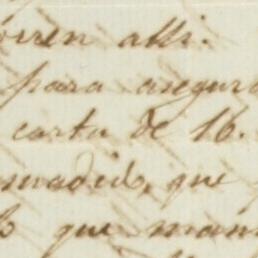 orren alli.
para asegura
carta de 16.
madid, que
que man